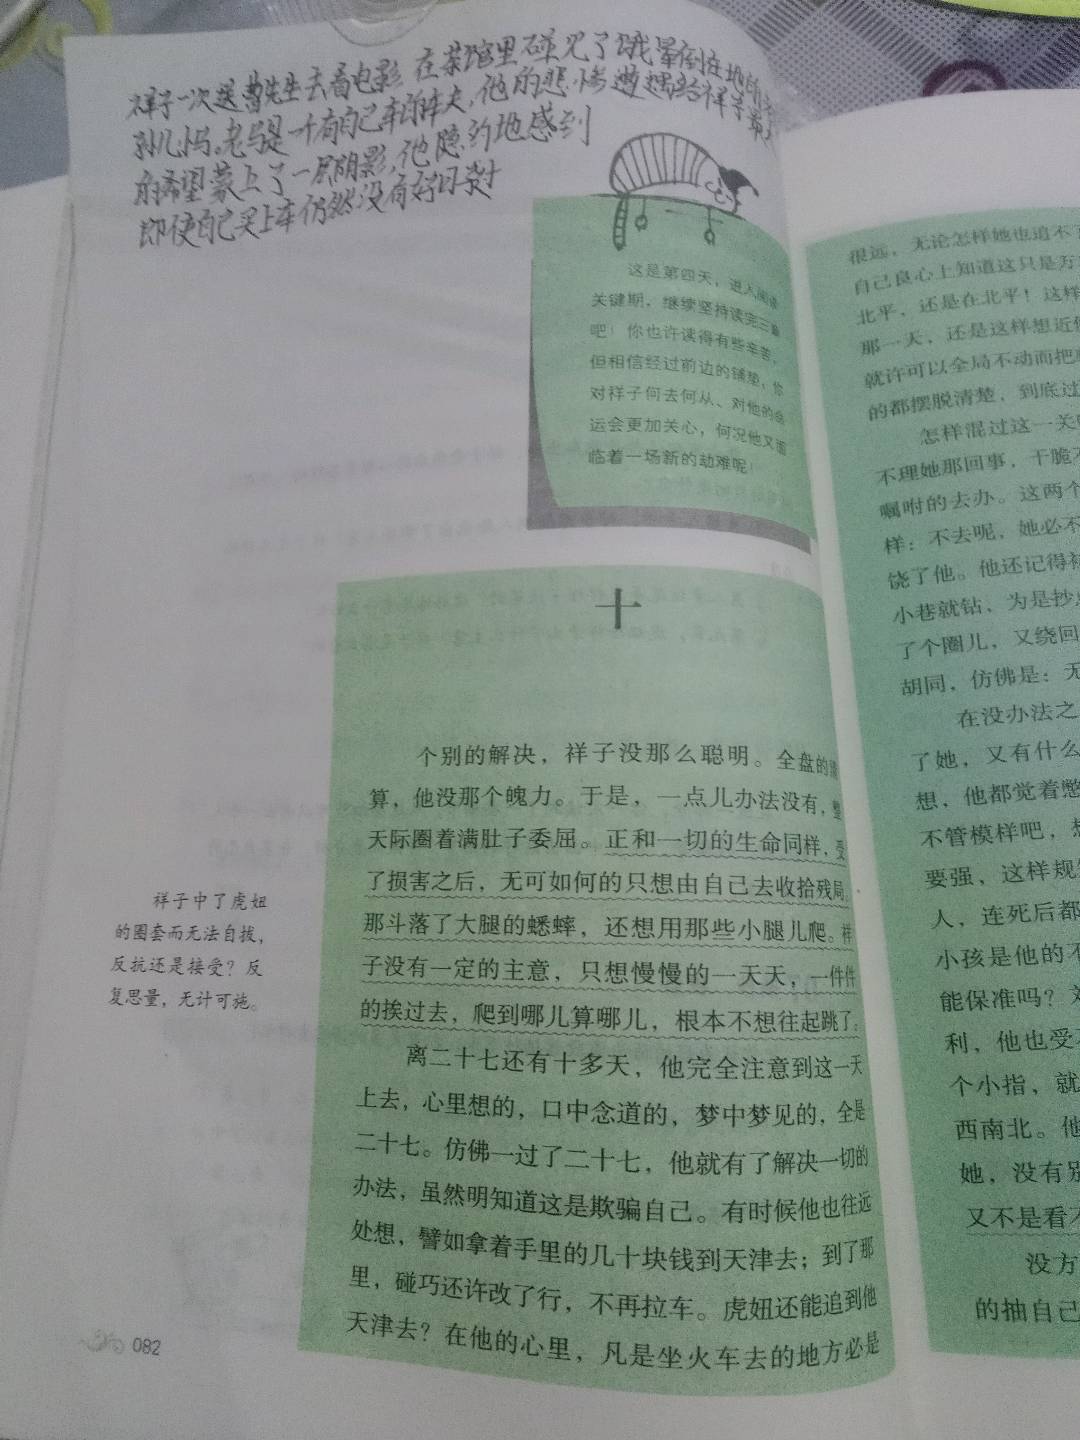 祥子一次送曹先生去看电影 在茶馆里碰见了饿晕倒在地的
孙儿小马。老马是一个有自己车的车夫,他的悲惨遭遇给祥子最大
的希望蒙上了一层阴影,他隐约地感到
即使自己买上车仍然没有好日子过
这是第四天,进入阅读
关键期,继续坚持读完三章
吧!你也许读得有些辛苦,
但相信经过前边的铺垫,你
对祥子何去何从、对他的命
运会更加关心,何况他又面
临着一场新的劫难呢!
十
个别的解决,祥子没那么聪明。全盘的清
算,他没那个魄力。于是,一点儿办法没有,整
天际圈着满肚子委屈。正和一切的生命同样,受
了损害之后,无可如何的只想由自己去收拾残局。
那斗落了大腿的蟋蟀,还想用那些小腿儿爬。祥
子没有一定的主意,只想慢慢的一天天,一件件
的挨过去,爬到哪儿算哪儿,根本不想往起跳了。
离二十七还有十多天,他完全注意到这一天
上去,心里想的,口中念道的,梦中梦见的,全是
二十七。仿佛一过了二十七,他就有了解决一切的
办法,虽然明知道这是欺骗自己。有时候他也往远
处想,譬如拿着手里的几十块钱到天津去;到了那
里,碰巧还许改了行,不再拉车。虎妞还能追到他
天津去?在他的心里,凡是坐火车去的地方必是
祥子中了虎妞
的圈套而无法自拔,
反抗还是接受?反
复思量,无计可施。
082
很远,无论怎样她也追不
自己良心上知道这只是万
北平,还是在北平!这样
那一天,还是这样想近
就许可以全局不动而把
的都摆脱清楚,到底过
怎样混过这一关
不理她那回事,干脆不
嘱咐的去办。这两个
样:不去呢,她必不
饶了他。他还记得
小巷就钻,为是抄
了个圈儿,又绕回
胡同,仿佛是:无
在没办法之
了她,又有什么
想,他都觉着憋
不管模样吧,
要强,这样规
人,连死后都
小孩是他的不
能保准吗?刘
利,他也受
个小指,就
西南北。他
她,没有别
又不是看不
没方
的抽自己